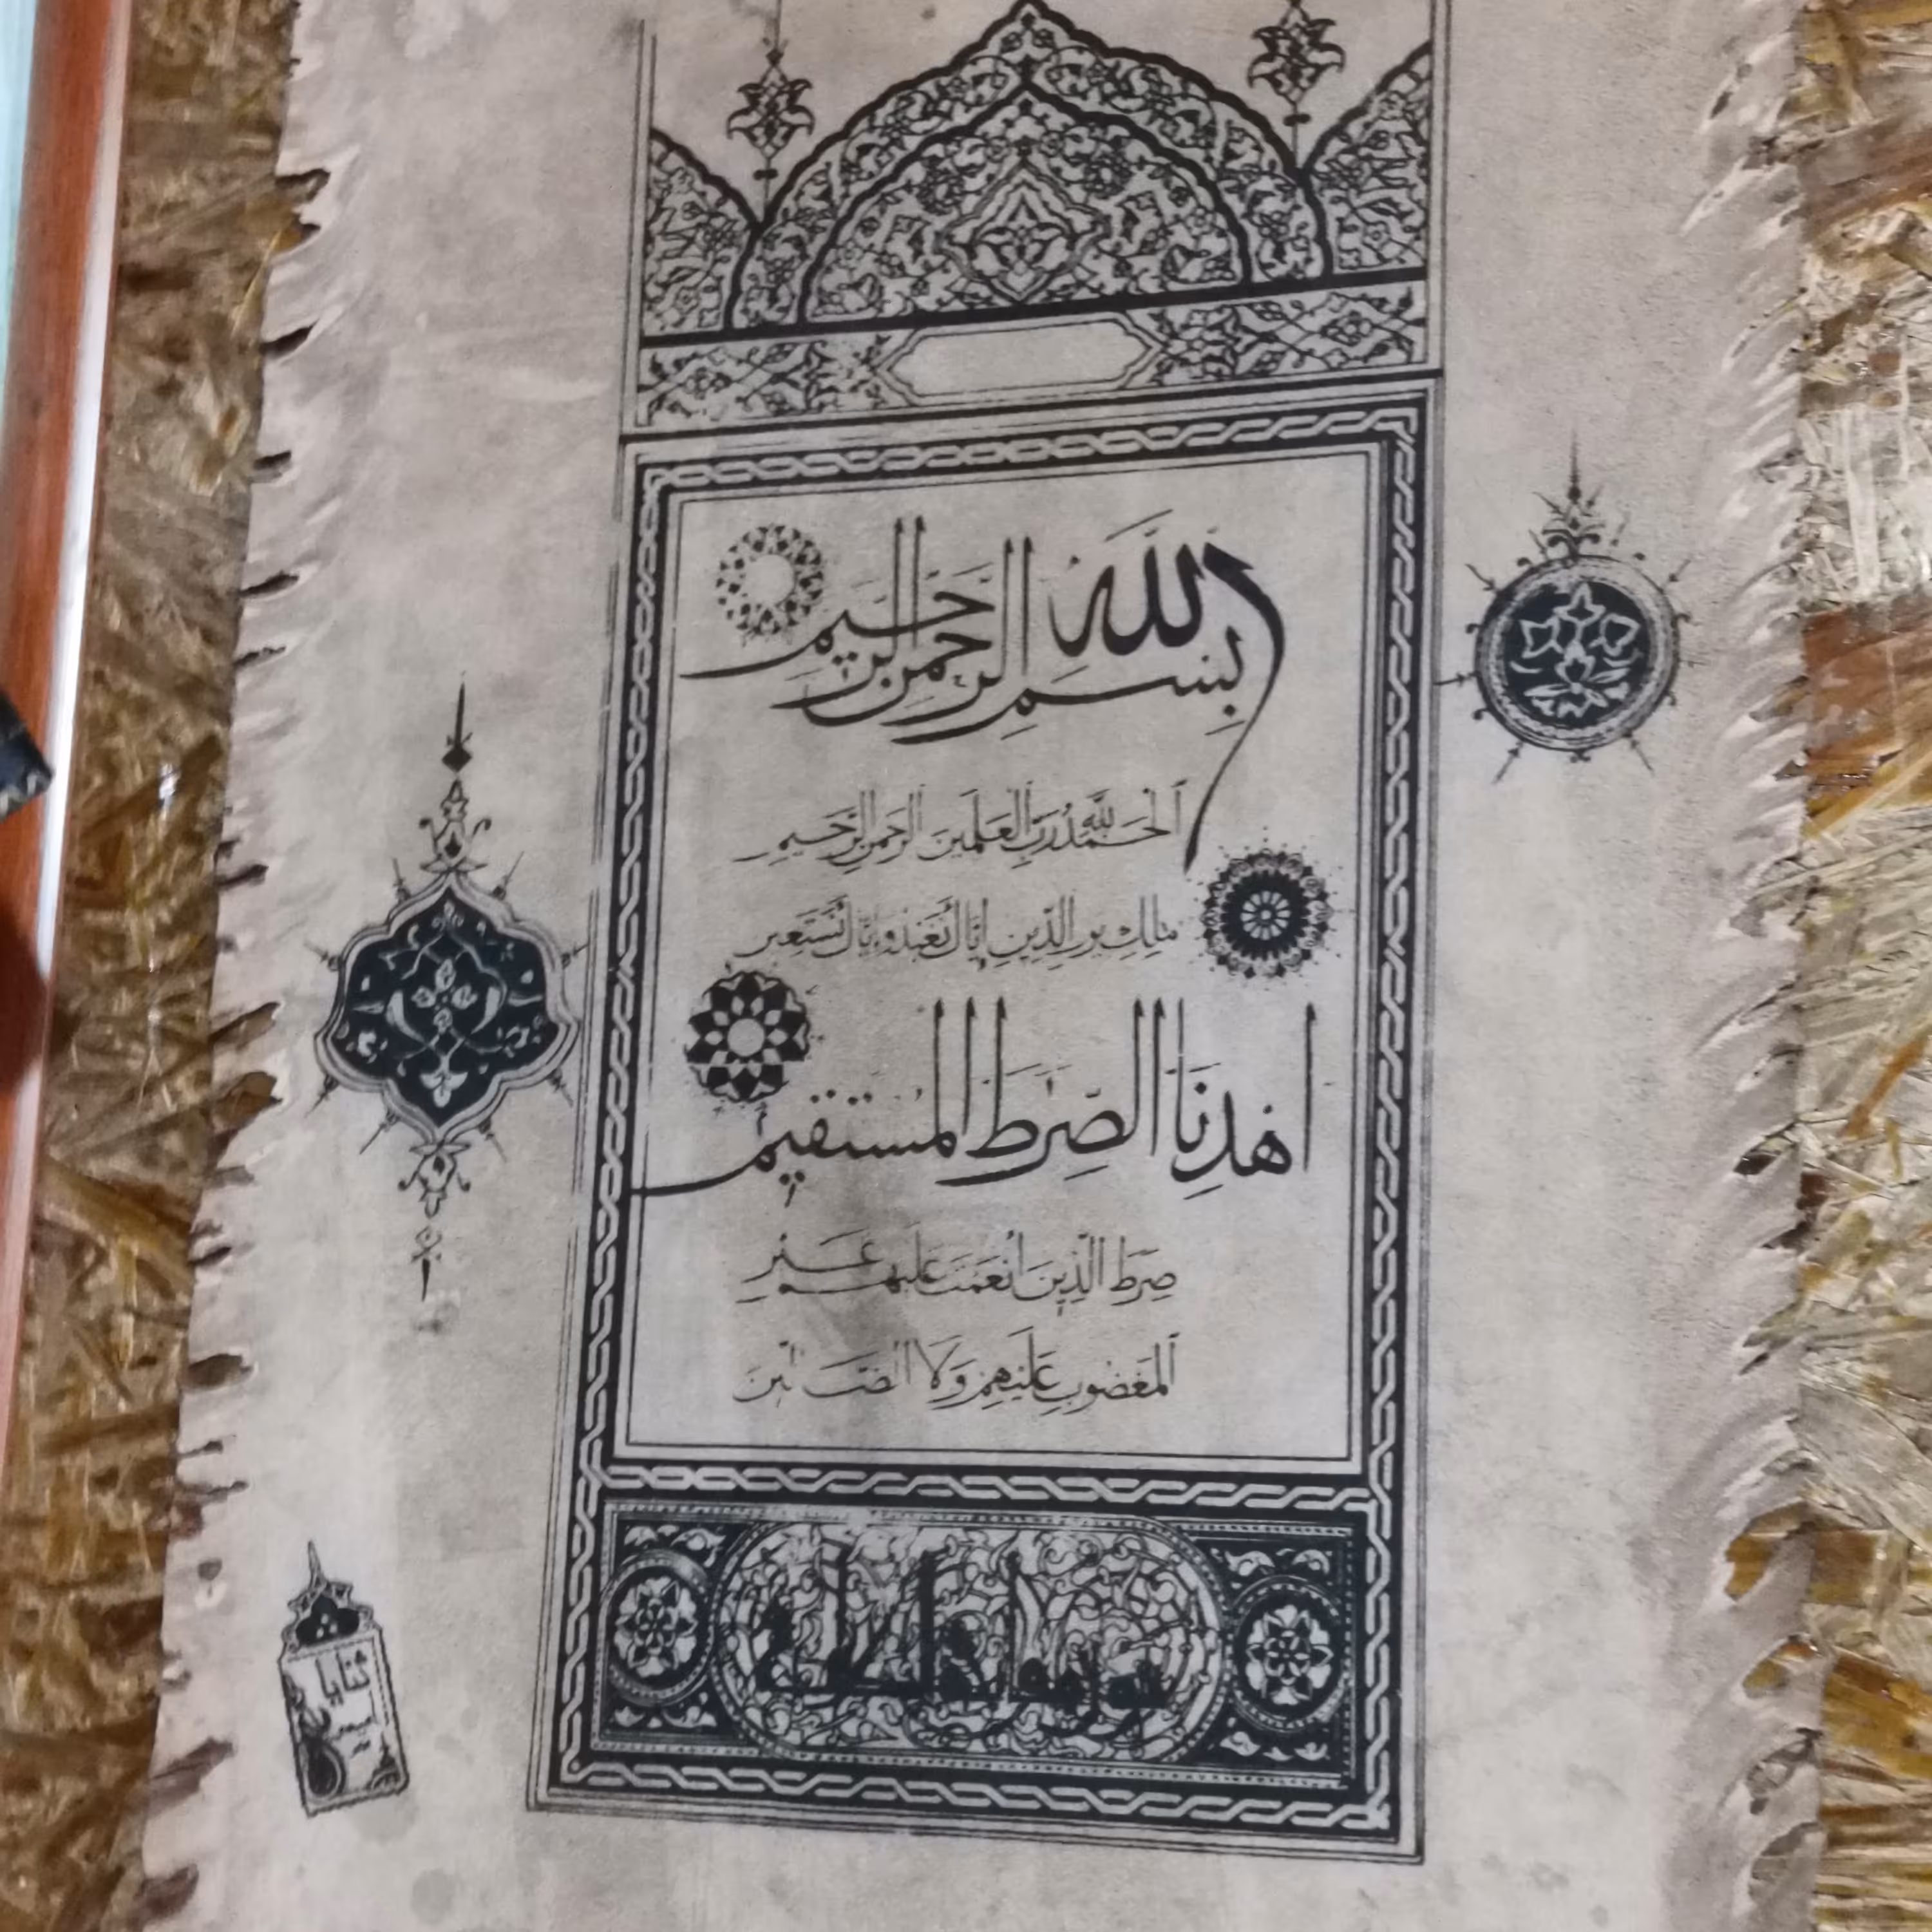 بِسْمِ اللَّهِ الرَّحْمَنِ الرَّحِيمِ
اَلْحَمْدُ لِلَّهِ رَبِّ الْعَلَمِينَ الرَّحْمَنِ الرَّحِيمِ
مَلِكِ يَوْمِ الدِّينِ إِيَّاكَ نَعْبُدُ وَإِيَّاكَ نَسْتَعِينُ
اهْدِنَا الصِّرَطَ الْمُسْتَقِيمَ
صِرَطَ الَّذِينَ أَنْعَمْتَ عَلَيْهِمْ غَيْرِ
الْمَغْضُوبِ عَلَيْهِمْ وَلَا الضَّالِّينَ
ثنايا